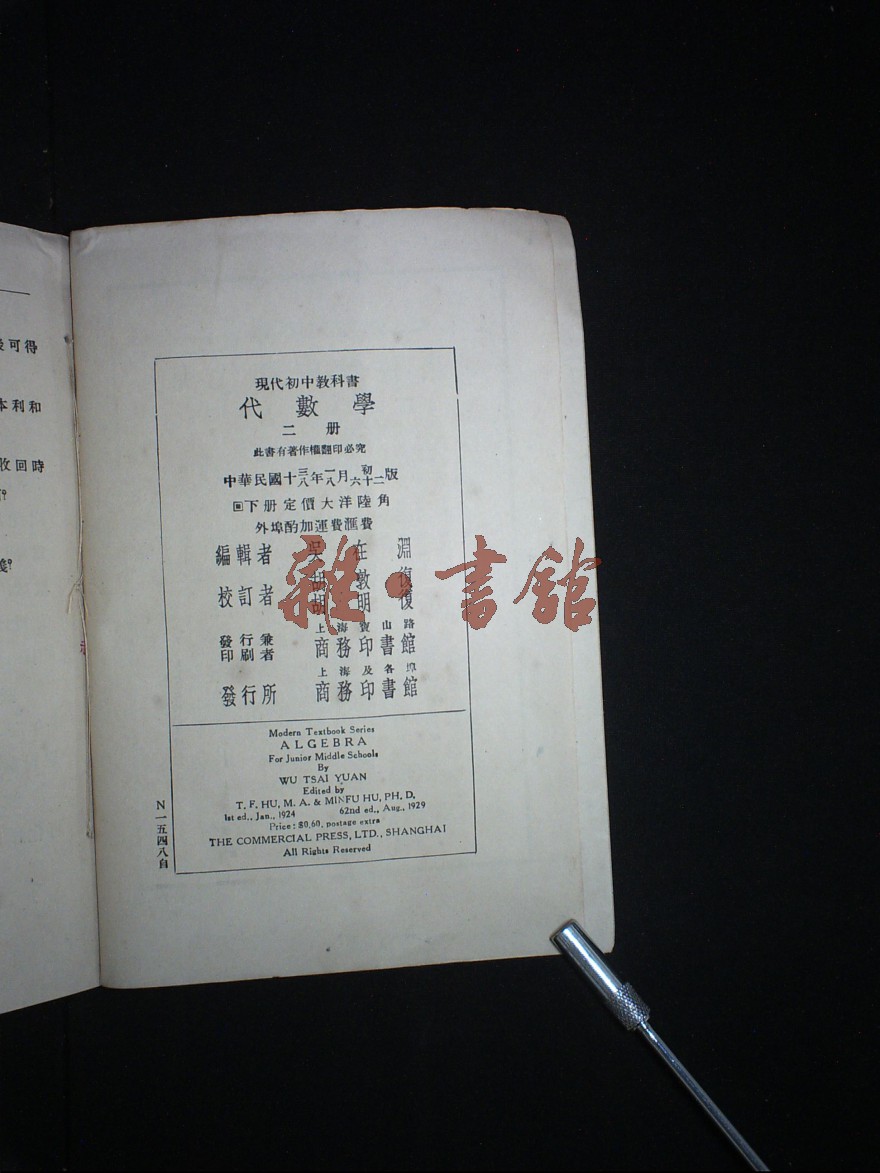 可得
本利和
收回時
現代初中教科書
代數學
二册
此書有著作權翻印必究
中華民國十三八年一八月初六十二版
下册定價大洋陸角
外埠酌加運費滙費
編輯者 吳在淵
校訂者 胡敦復 胡明復
發行兼印刷者 上海寶山路 商務印書館
發行所 上海及各埠 商務印書館
Modern Textbook Series
ALGEBRA
For Junior Middle Schools
By
WU TSAI YUAN
Edited by
T. F. HU, M. A. & MINFU HU, PH. D.
1st ed., Jan., 1924 62nd ed., Aug., 1929
Price: $0.60, postage extra
THE COMMERCIAL PRESS, LTD., SHANGHAI
All Rights Reserved
N一五四八自
雜·書館